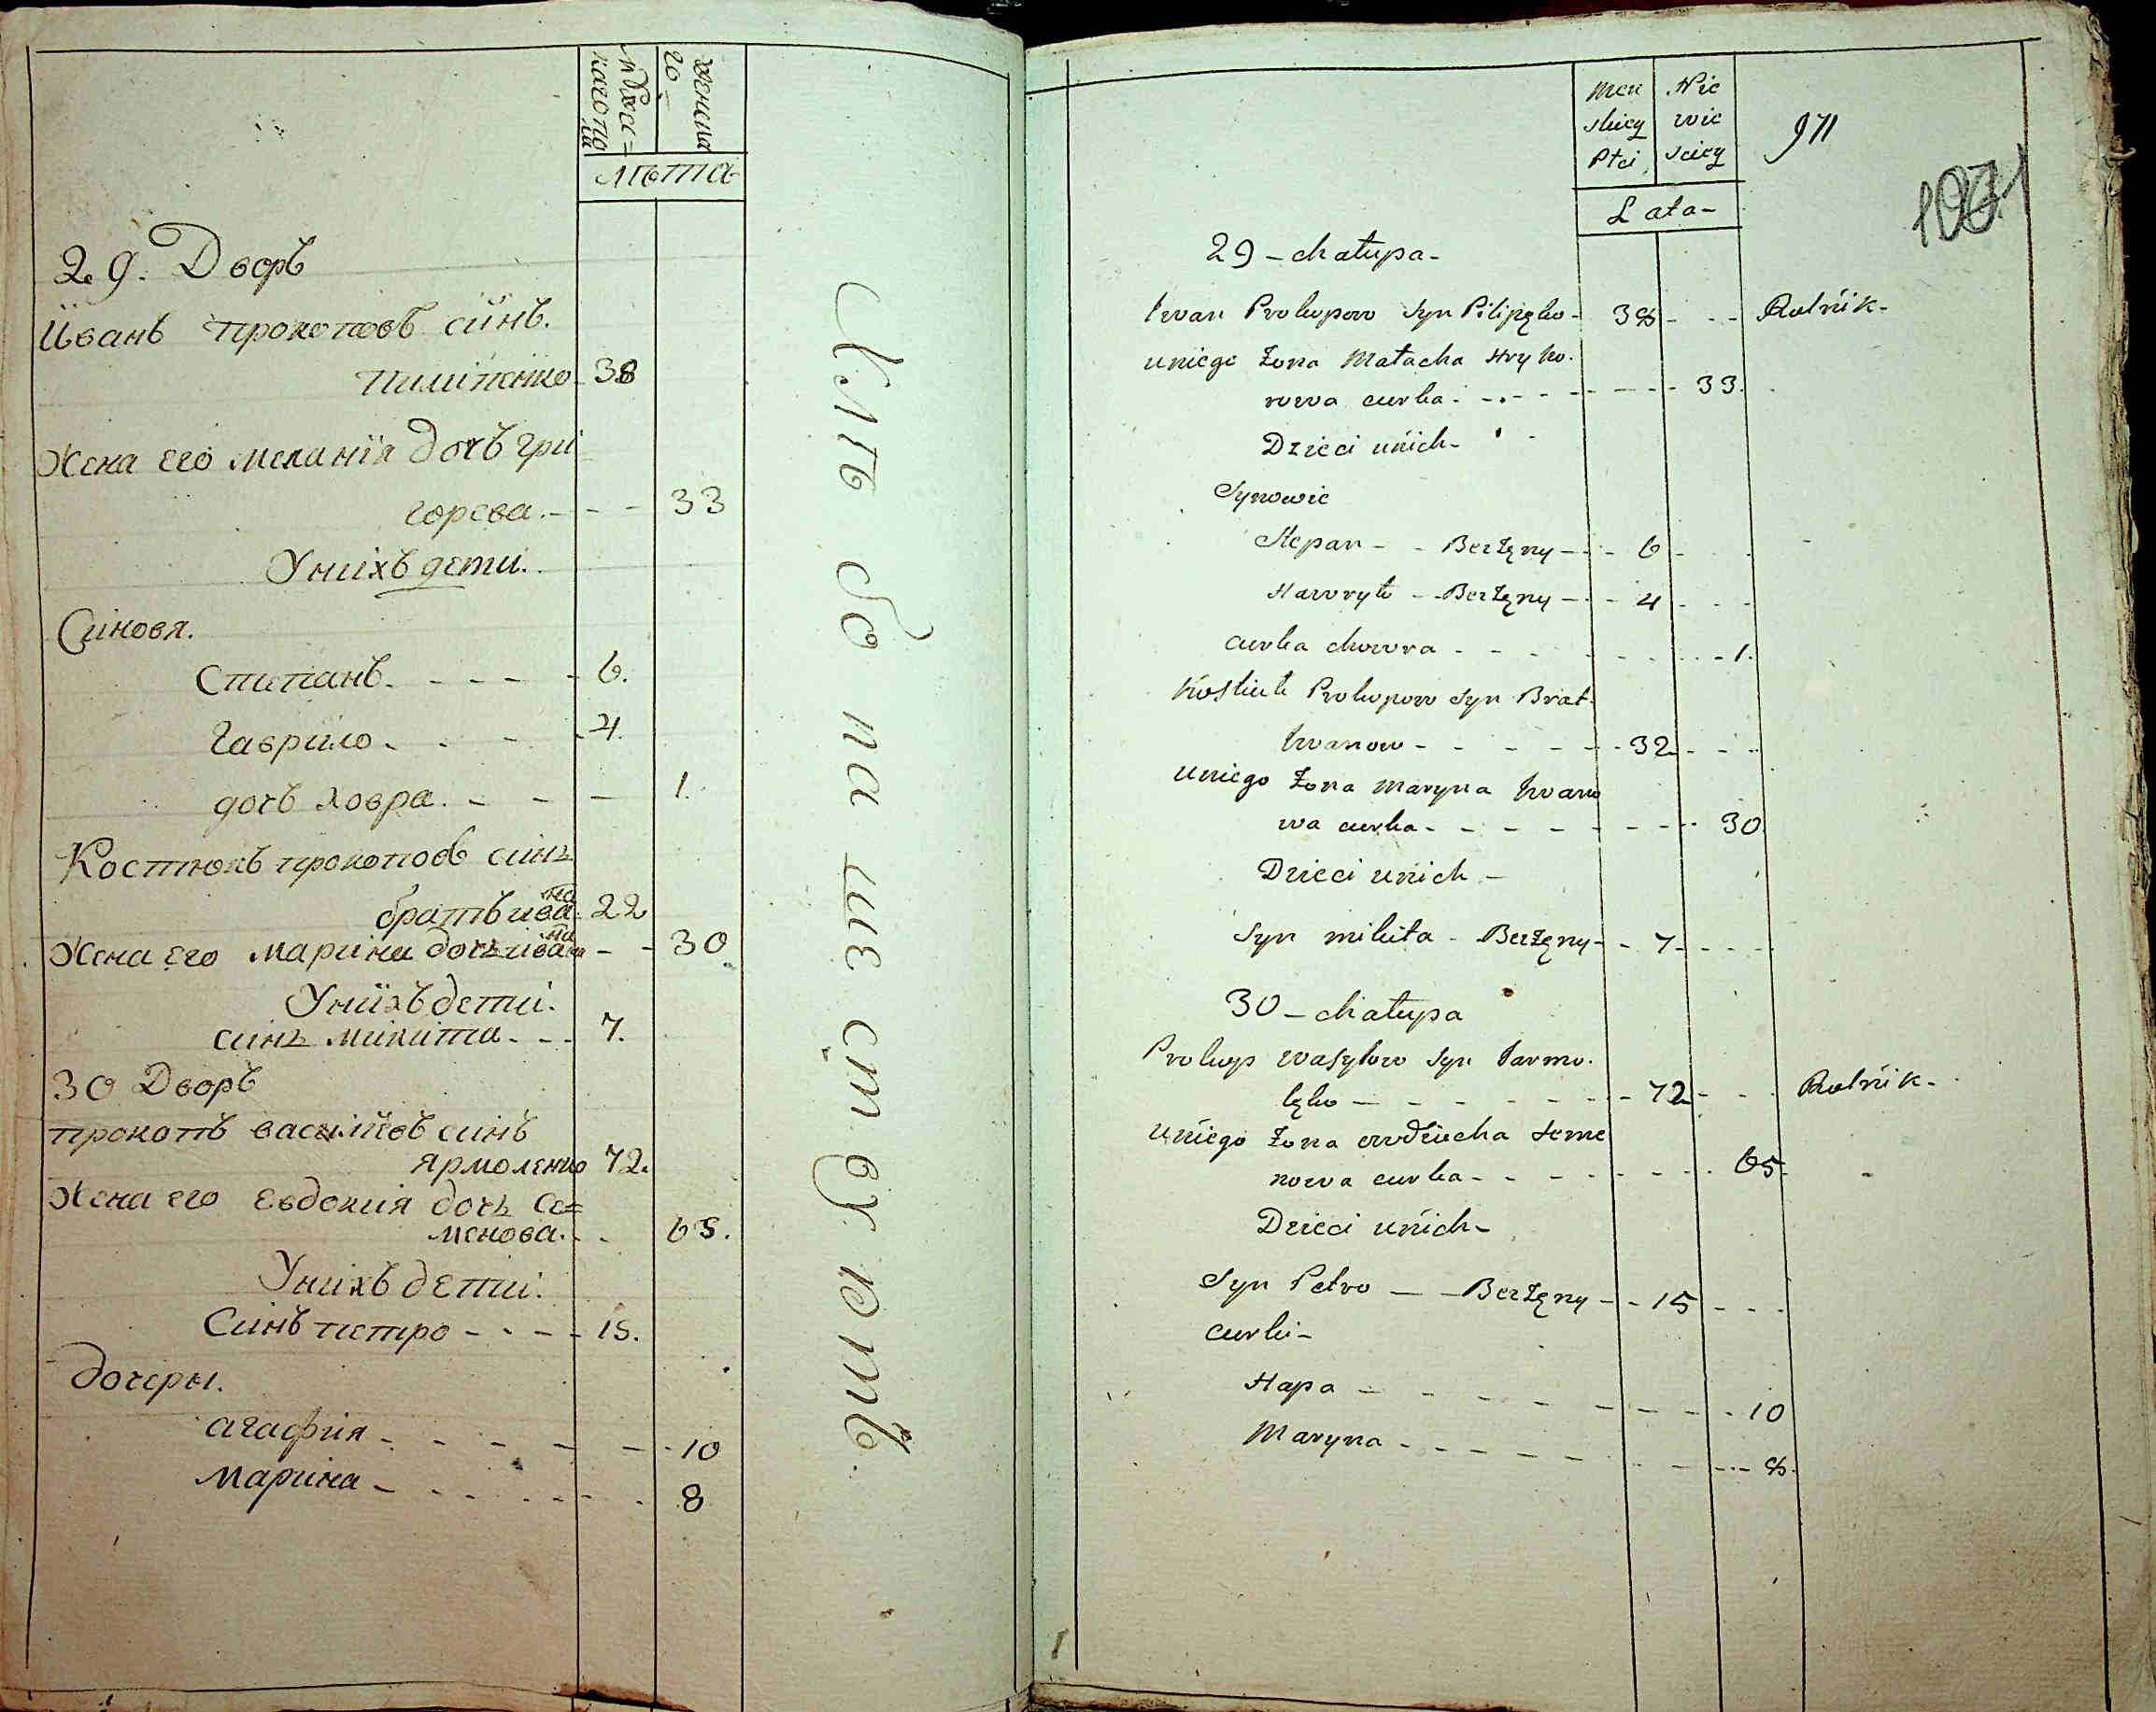 мужес=
каго по
ла
женска
го
лѣта
29. Дворъ
Иванъ прокоповъ синъ.
пилипенко 38
Жена его меланїя дочъ гри
горева. - - - 33
Унихъ дети.
Синовя.
Степанъ. - - - - 6.
Гаврило. - - - 4.
дочъ ховра. - - - 1.
Костюкъ прокоповъ синъ
братъ ивана 22
Жена его марина дочъ ивана - - 30
Унихъ дети.
синъ микита. - - 7.
30 Дворъ
прокопъ василиевъ синъ
Ярмоленко 72.
Жена его Евдокия дочь Се=
менова. - - 65.
Унихъ дети.
Синъ петро - - - - 15.
дочеры.
агафия - - - - - - 10
марина - - - - - - 8
Men
skiey
Płci
Nie
wie
sciey
971
Lata -
29 - chałupa -
Iwan Prokopow Syn Pilipęko - 38 - - - Rolnik -
uniego Żona Małacha Hryho.
rowa curka - - - - - - - 33.
Dzieci unich -
Synowie
Stepan - - Bezżęny - - - 6 - - -
Hawryło - - Bezżęny - - - 4 - - -
curka chowra - - - - - - - 1.
Kostiuk Prokopow Syn Brat
Iwanow - - - - - - 32 - - -
uniego Żona Maryna Iwano
wa curka - - - - - - - 30.
Dzieci unich -
Syn mikita - Bezżęny - - 7 - - - -
30 - chałupa
Prokop Wasylow Syn Jarmo.
lęko - - - - - - - 72 - - - Rolnik -
uniego Żona owdziucha Seme
nowa curka - - - - - - - 65.
Dzieci unich -
Syn Petro - - Bezżęny - - 15 - - -
curki -
Hapa - - - - - - - - 10
Maryna - - - - - - - - 8.